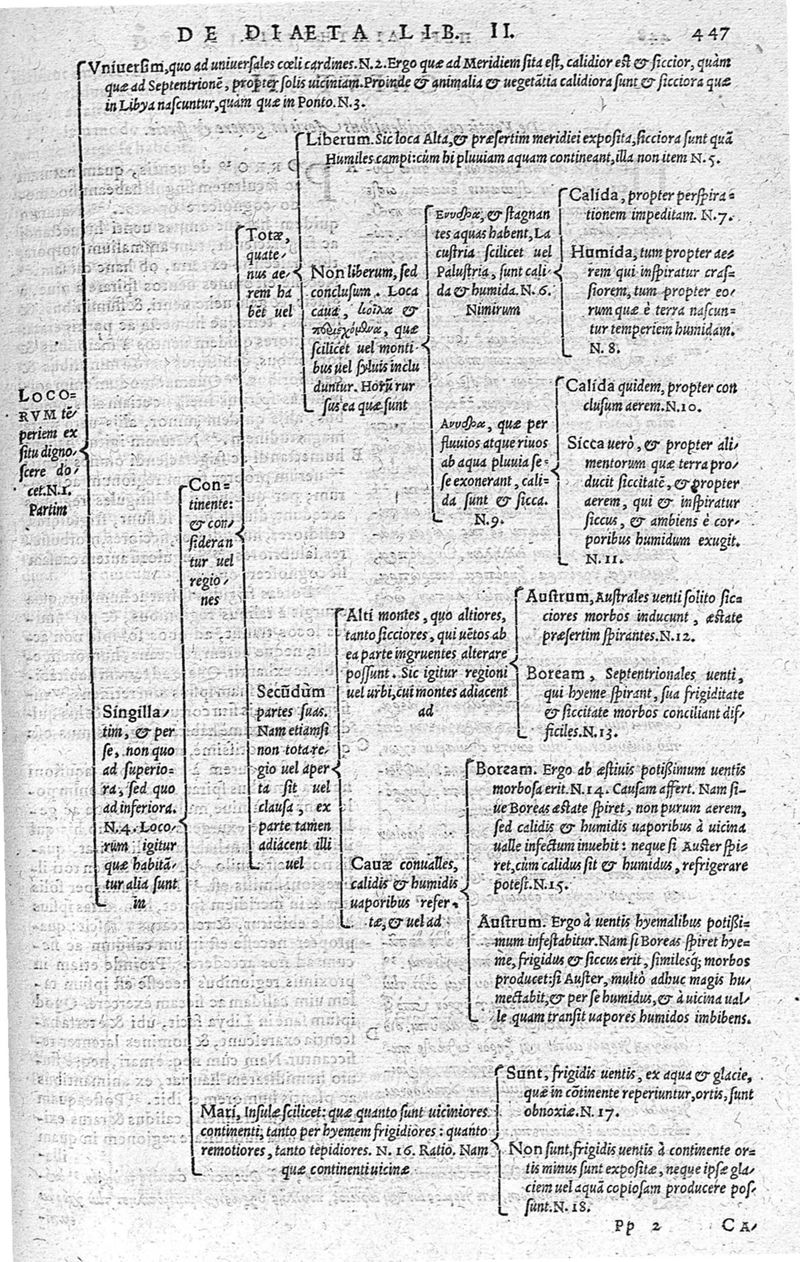 DE DIAETA LIB. II. 447
Vniuersim, quo ad uniuersales cœli cardines. N. 2. Ergo quæ ad Meridiem sita est, calidior est & siccior, quàm
quæ ad Septentrionē, propter solis uiciniam. Proinde & animalia & uegetātia calidiora sunt & sicciora quæ
in Libya nascuntur, quam quæ in Ponto. N. 3.
LOCO-
RVM tē-
periem ex
situ digno-
scere do-
cet. N. 1.
Partim
Singilla-
tim, & per
se, non quo
ad superio-
ra, sed quo
ad inferiora.
N. 4. Loco-
rùm igitur
quæ habitā-
tur alia sunt
in
Con-
tinente:
& con-
sideran
tur uel
regio-
nes
Totæ,
quate-
nus ae-
rem ha
bēt uel
Liberum. Sic loca Alta, & præsertim meridiei exposita, sicciora sunt quā
Humiles campi: cùm hi pluuiam aquam contineant, illa non item N. 5.
Non liberum, sed
conclusum. Loca
caua, κοῖλα &
quæ
scilicet uel monti-
bus uel syluis inclu
duntur. Horū rur
sus ea quæ sunt
Ενυδρα, & stagnan
tes aquas habent, La
custria scilicet uel
Palustria, sunt cali-
da & humida. N. 6.
Nimirum
Calida, propter perspira-
tionem impeditam. N. 7.
Humida, tum propter ae-
rem qui inspiratur cras-
siorem, tum propter eo-
rum quæ è terra nascun-
tur temperiem humidam.
N. 8.
Ανυδρα, quæ per
fluuios atque riuos
ab aqua pluuia se-
se exonerant, cali-
da sunt & sicca.
N. 9.
Calida quidem, propter con
clusum aerem. N. 10.
Sicca uerò, & propter ali-
mentorum quæ terra pro-
ducit siccitatē, & propter
aerem, qui & inspiratur
siccus, & ambiens è cor-
poribus humidum exugit.
N. 11.
Secūdùm
partes suas.
Nam etiamsi
non tota re-
gio uel aper
ta sit uel
clausa, ex
parte tamen
adiacent illi
uel
Alti montes, quo altiores,
tanto sicciores, qui uētos ab
ea parte ingruentes alterare
possunt. Sic igitur regioni
uel urbi, cui montes adiacent
ad
Austrum, Australes uenti solito sic-
ciores morbos inducunt, æstate
præsertim spirantes. N. 12.
Boream, Septentrionales uenti,
qui hyeme spirant, sua frigiditate
& siccitate morbos conciliant dif-
ficiles. N. 13.
Cauæ conualles,
calidis & humidis
uaporibus refer-
tæ, & uel ad
Boream. Ergo ab æstiuis potißimum uentis
morbosa erit. N. 14. Causam affert. Nam si-
ue Boreas æstate spiret, non purum aerem,
sed calidis & humidis uaporibus à uicina
ualle infectum inuehit: neque si Auster spi-
ret, cùm calidus sit & humidus, refrigerare
potest. N. 15.
Austrum. Ergo à uentis hyemalibus potißi-
mum infestabitur. Nam si Boreas spiret hye-
me, frigidus & siccus erit, similesq; morbos
producet: si Auster, multò adhuc magis hu-
mectabit, & per se humidus, & à uicina ual-
le quam transit uapores humidos imbibens.
Mari, Insulæ scilicet: quæ quanto sunt uiciniores
continenti, tanto per hyemem frigidiores: quanto
remotiores, tanto tepidiores. N. 16. Ratio. Nam
quæ continenti uicinæ
Sunt, frigidis uentis, ex aqua & glacie,
quæ in cōtinente reperiuntur, ortis, sunt
obnoxiæ. N. 17.
Non sunt, frigidis uentis à continente or-
tis minus sunt expositæ, neque ipsæ gla-
ciem uel aquā copiosam producere pos-
sunt. N. 18.
Pp 2 CA-